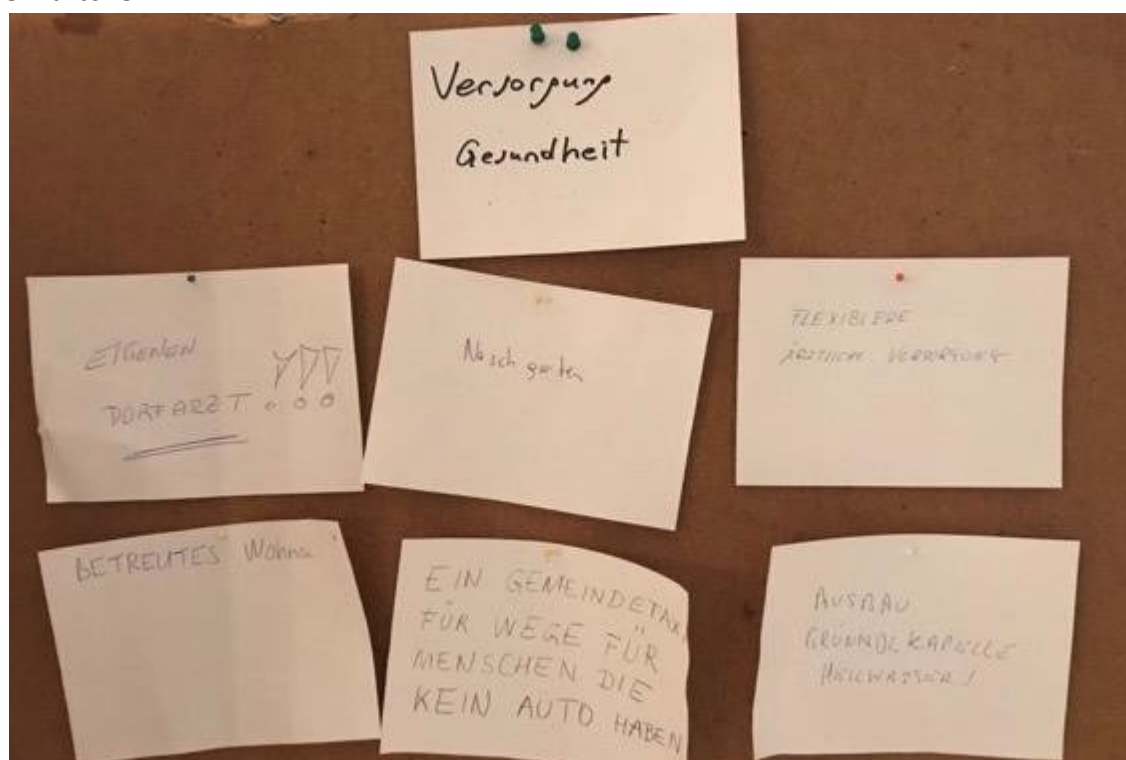 Versorgung
Gesundheit
EIGENEN
DORFARZT !!!
Naschgarten
FLEXIBLERE
ÄRZTLICHE VERSORGUNG
BETREUTES Wohnen
EIN GEMEINDETAXI
FÜR WEGE FÜR
MENSCHEN DIE
KEIN AUTO HABEN
AUSBAU
GRÜNNDLKAPELLE
HEILWASSER!